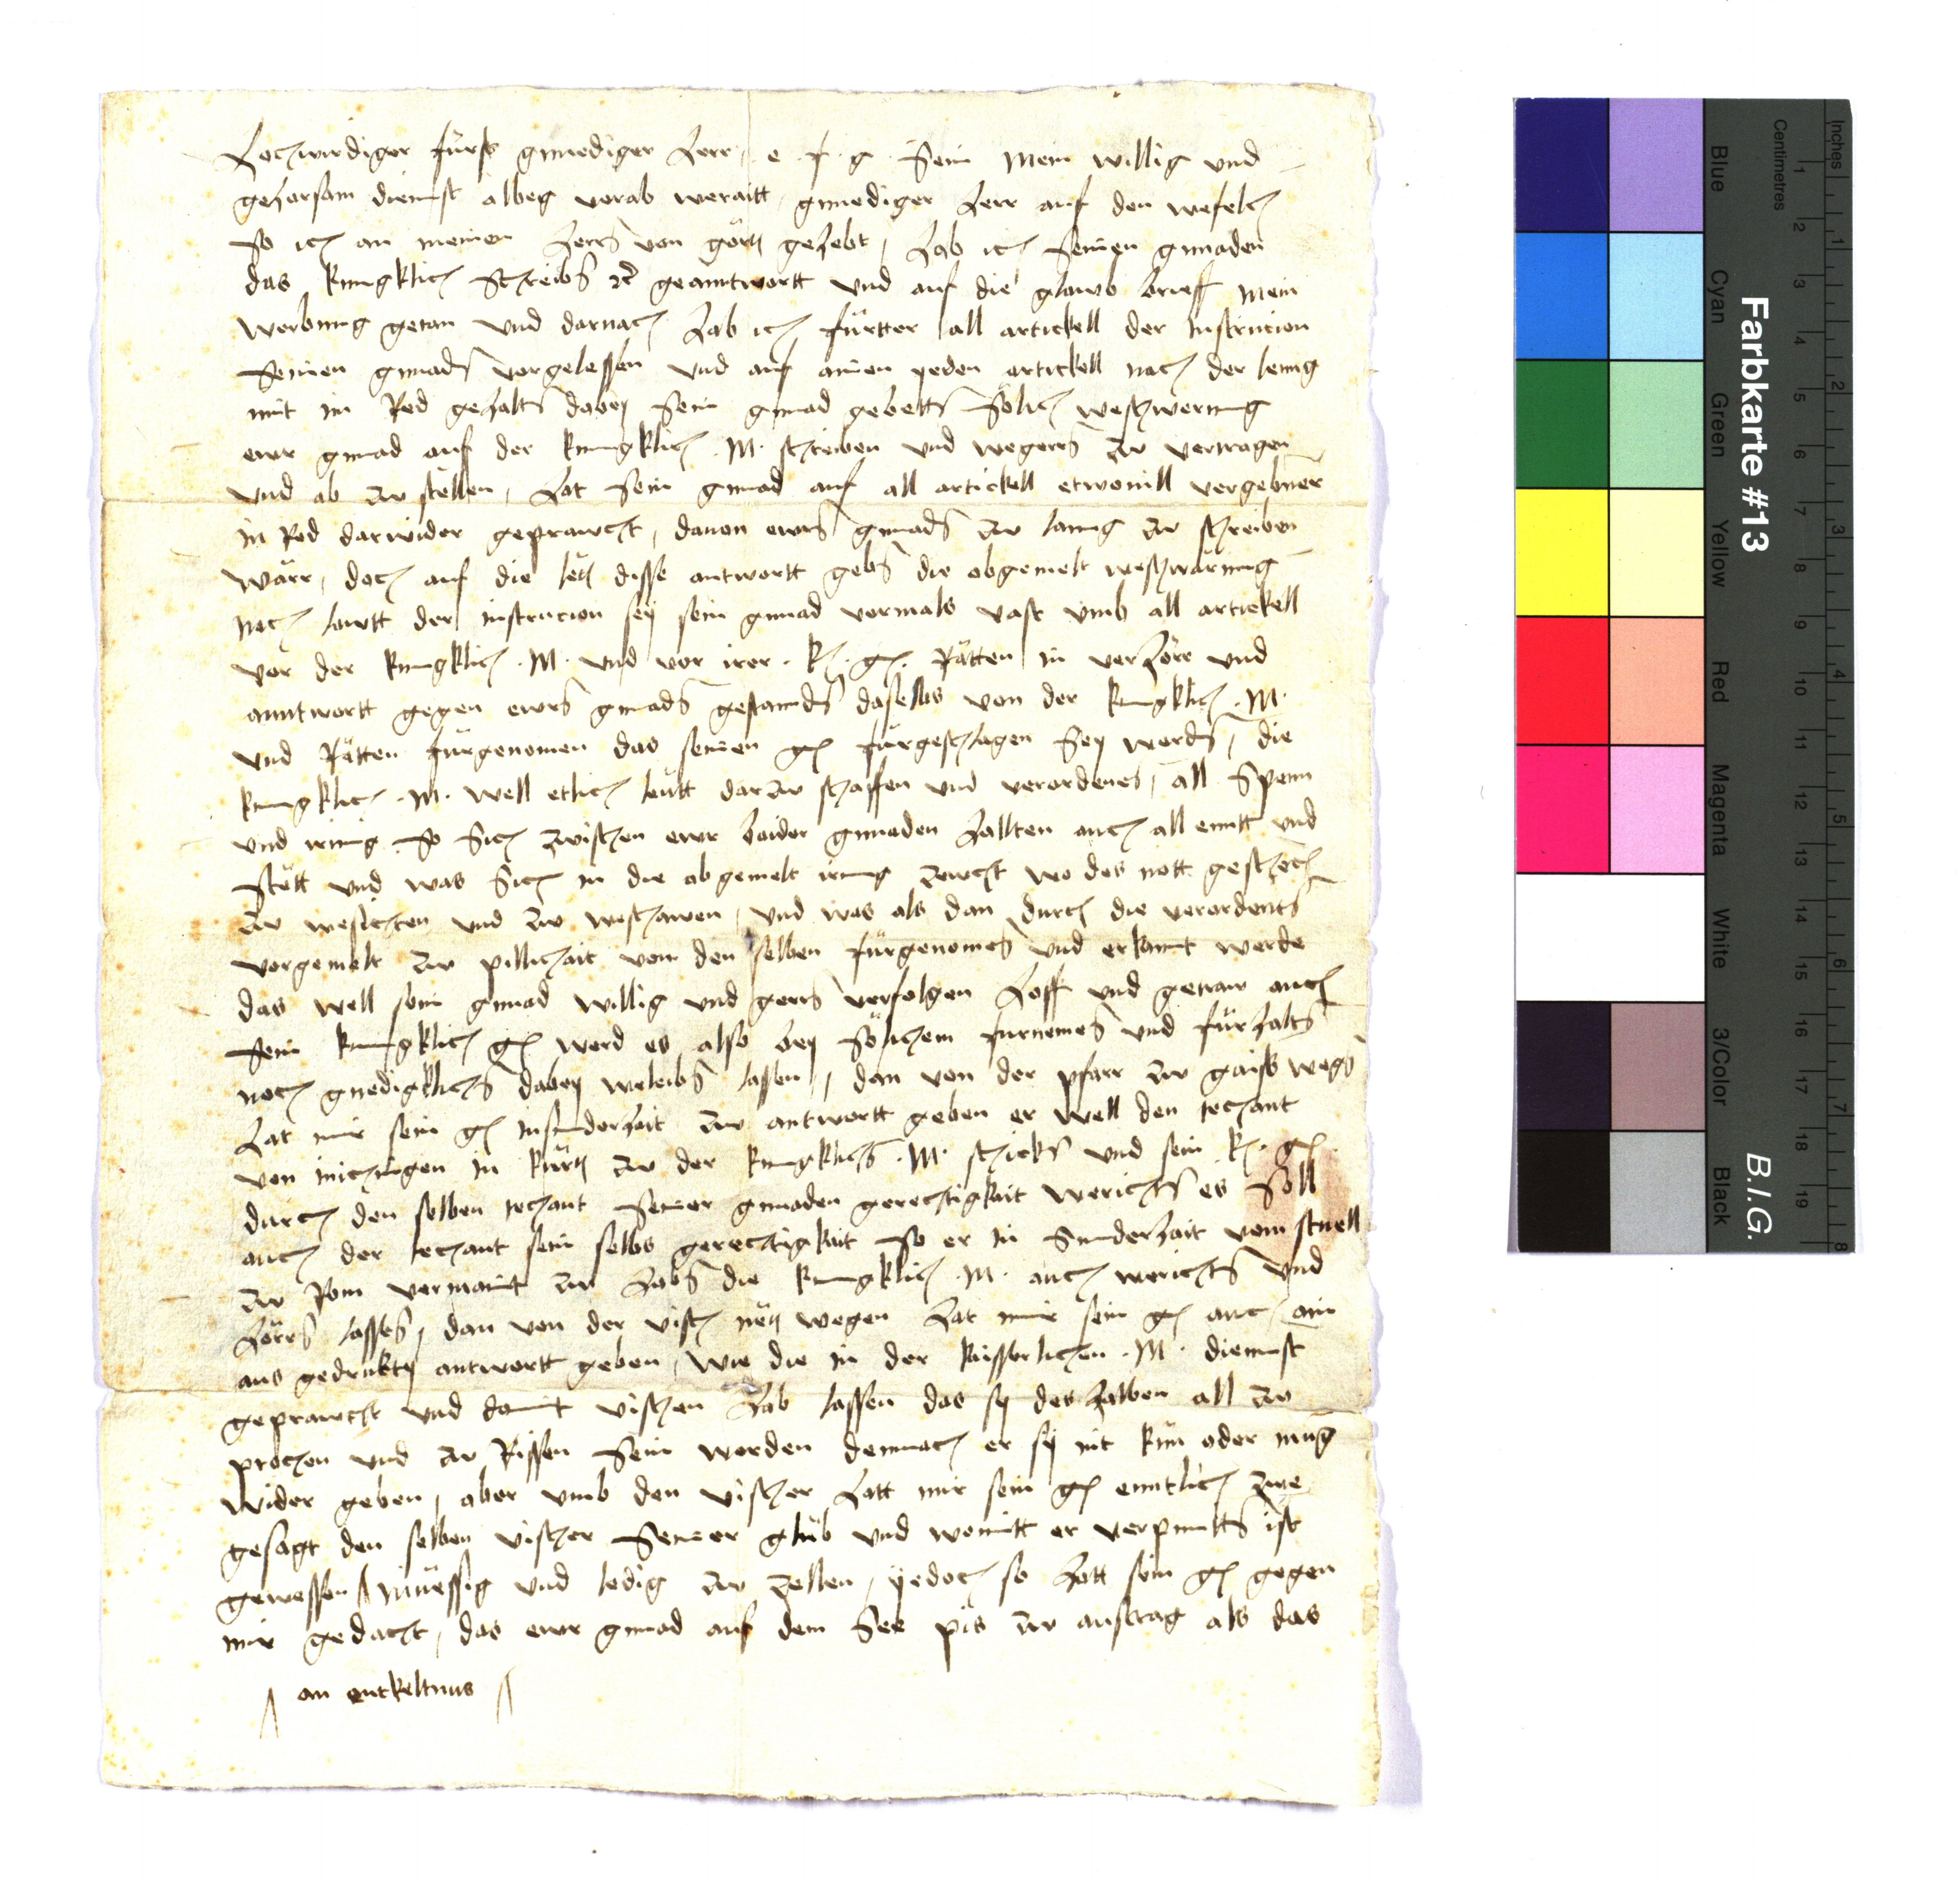 Hochwirdiger fürst gnnediger herr, e. f. g. sein mein willig und
gehorsam diennst albeg vorab weraitt, gnnediger herr auf den wefelch
so ich an meinen herrn von görtz gehebt, hab ich seinen gnnaden
das kunigklich schreibn etc geanntwortt und auf die glawb brieff mein
werbung getan und darnach hab ich fürtter all artickell der instrucion
seinen gnnadn vorgelessen und auf ainen yeden artickell nach der leng
mit im red gehaltn dabey sein gnnad gebettn sölich weschwernng
ewr gnnad auf der kunigklich .M. schreiben und wegern zw vertragen
und ab zw stellen, hat sein gnnad auf all artickell etwouill vergebner
in red darwider geprawcht, dauon ewrn gnnadn zw lanng zw schreiben
wärr, doch auf die letz disse antwortt gebn die obgemelt weschwärung
nach lawtt der instrucion sey sein gnnad vormals vast umb all artickell
vor der kunigklich .M. und vor irer .k. g. rätten in verhörr und
anntwortt gegen ewrn gnnadn gestanndn daselbs von der kunigklich .M.
und rätten fürgenomen das seinen g fürgeschlagen sey wordn, die
kunigklich .M. well etlich leütt darzw schaffen und verordenen, all spenn
und irrung so sich zwischen ewr baider gnnaden hallten auch all ennd und
stett und was sich in die abgemelt irrung zewcht wo des nott geschech
zw wesichten und zw weschawen, und was als dan durch die verordentn
vorgemelt zw pillichait von den selben fürgenomen und erkannt werde
das well sein gnnad willig und gern verfolgen hoff und getraw auch
sein kunigklich g werd es also bey sölichem furnemen und fürhaltn
noch gnedigklichn dabey weleibn lassen, dan von der pfarr zw gaiss wegn
hat mir sein g insunderhait zw antwortt geben er well den techant
von inichingen in kürtz zw der kunigklichn .M. schickn und sein k. g.
durch den selben techant seiner gnnaden gerechtigkait werichtn es soll
auch der techant sein selbs gerechtigkait so er in sunderhait vom stuell
zw Rom vermaint zw habn die kunigklich .M. auch werichtn und
hörrn lassen, dan von der visch netz wegen hat mir sein g auch ain
aus gedrukty antwortt geben, wie die in der kaisserlichen .M. diennst
geprawcht und damit vischen hab lassen das sy deshalben all zw
prochen und zw rissen sein worden demnach er sy nit kün oder müg
wider geben, aber umb den vischer hatt mir sein g enntlich zwe
gesagt den selben vischer seiner glüb und womitt er verpunttn ist
gewessen müessig und ledig zw zellen, yedoch so hatt sein g gegen
mir gedacht, das ewr gnnad auf dem see pis zw austrag als das
an entkeltnus
Farbkarte #13
B.I.G.
Inches
Centimetres
Blue
Cyan
Green
Yellow
Red
Magenta
White
3/Color
Black
1 2 3 4 5 6 7 8 9 10 11 12 13 14 15 16 17 18 19
1 2 3 4 5 6 7 8